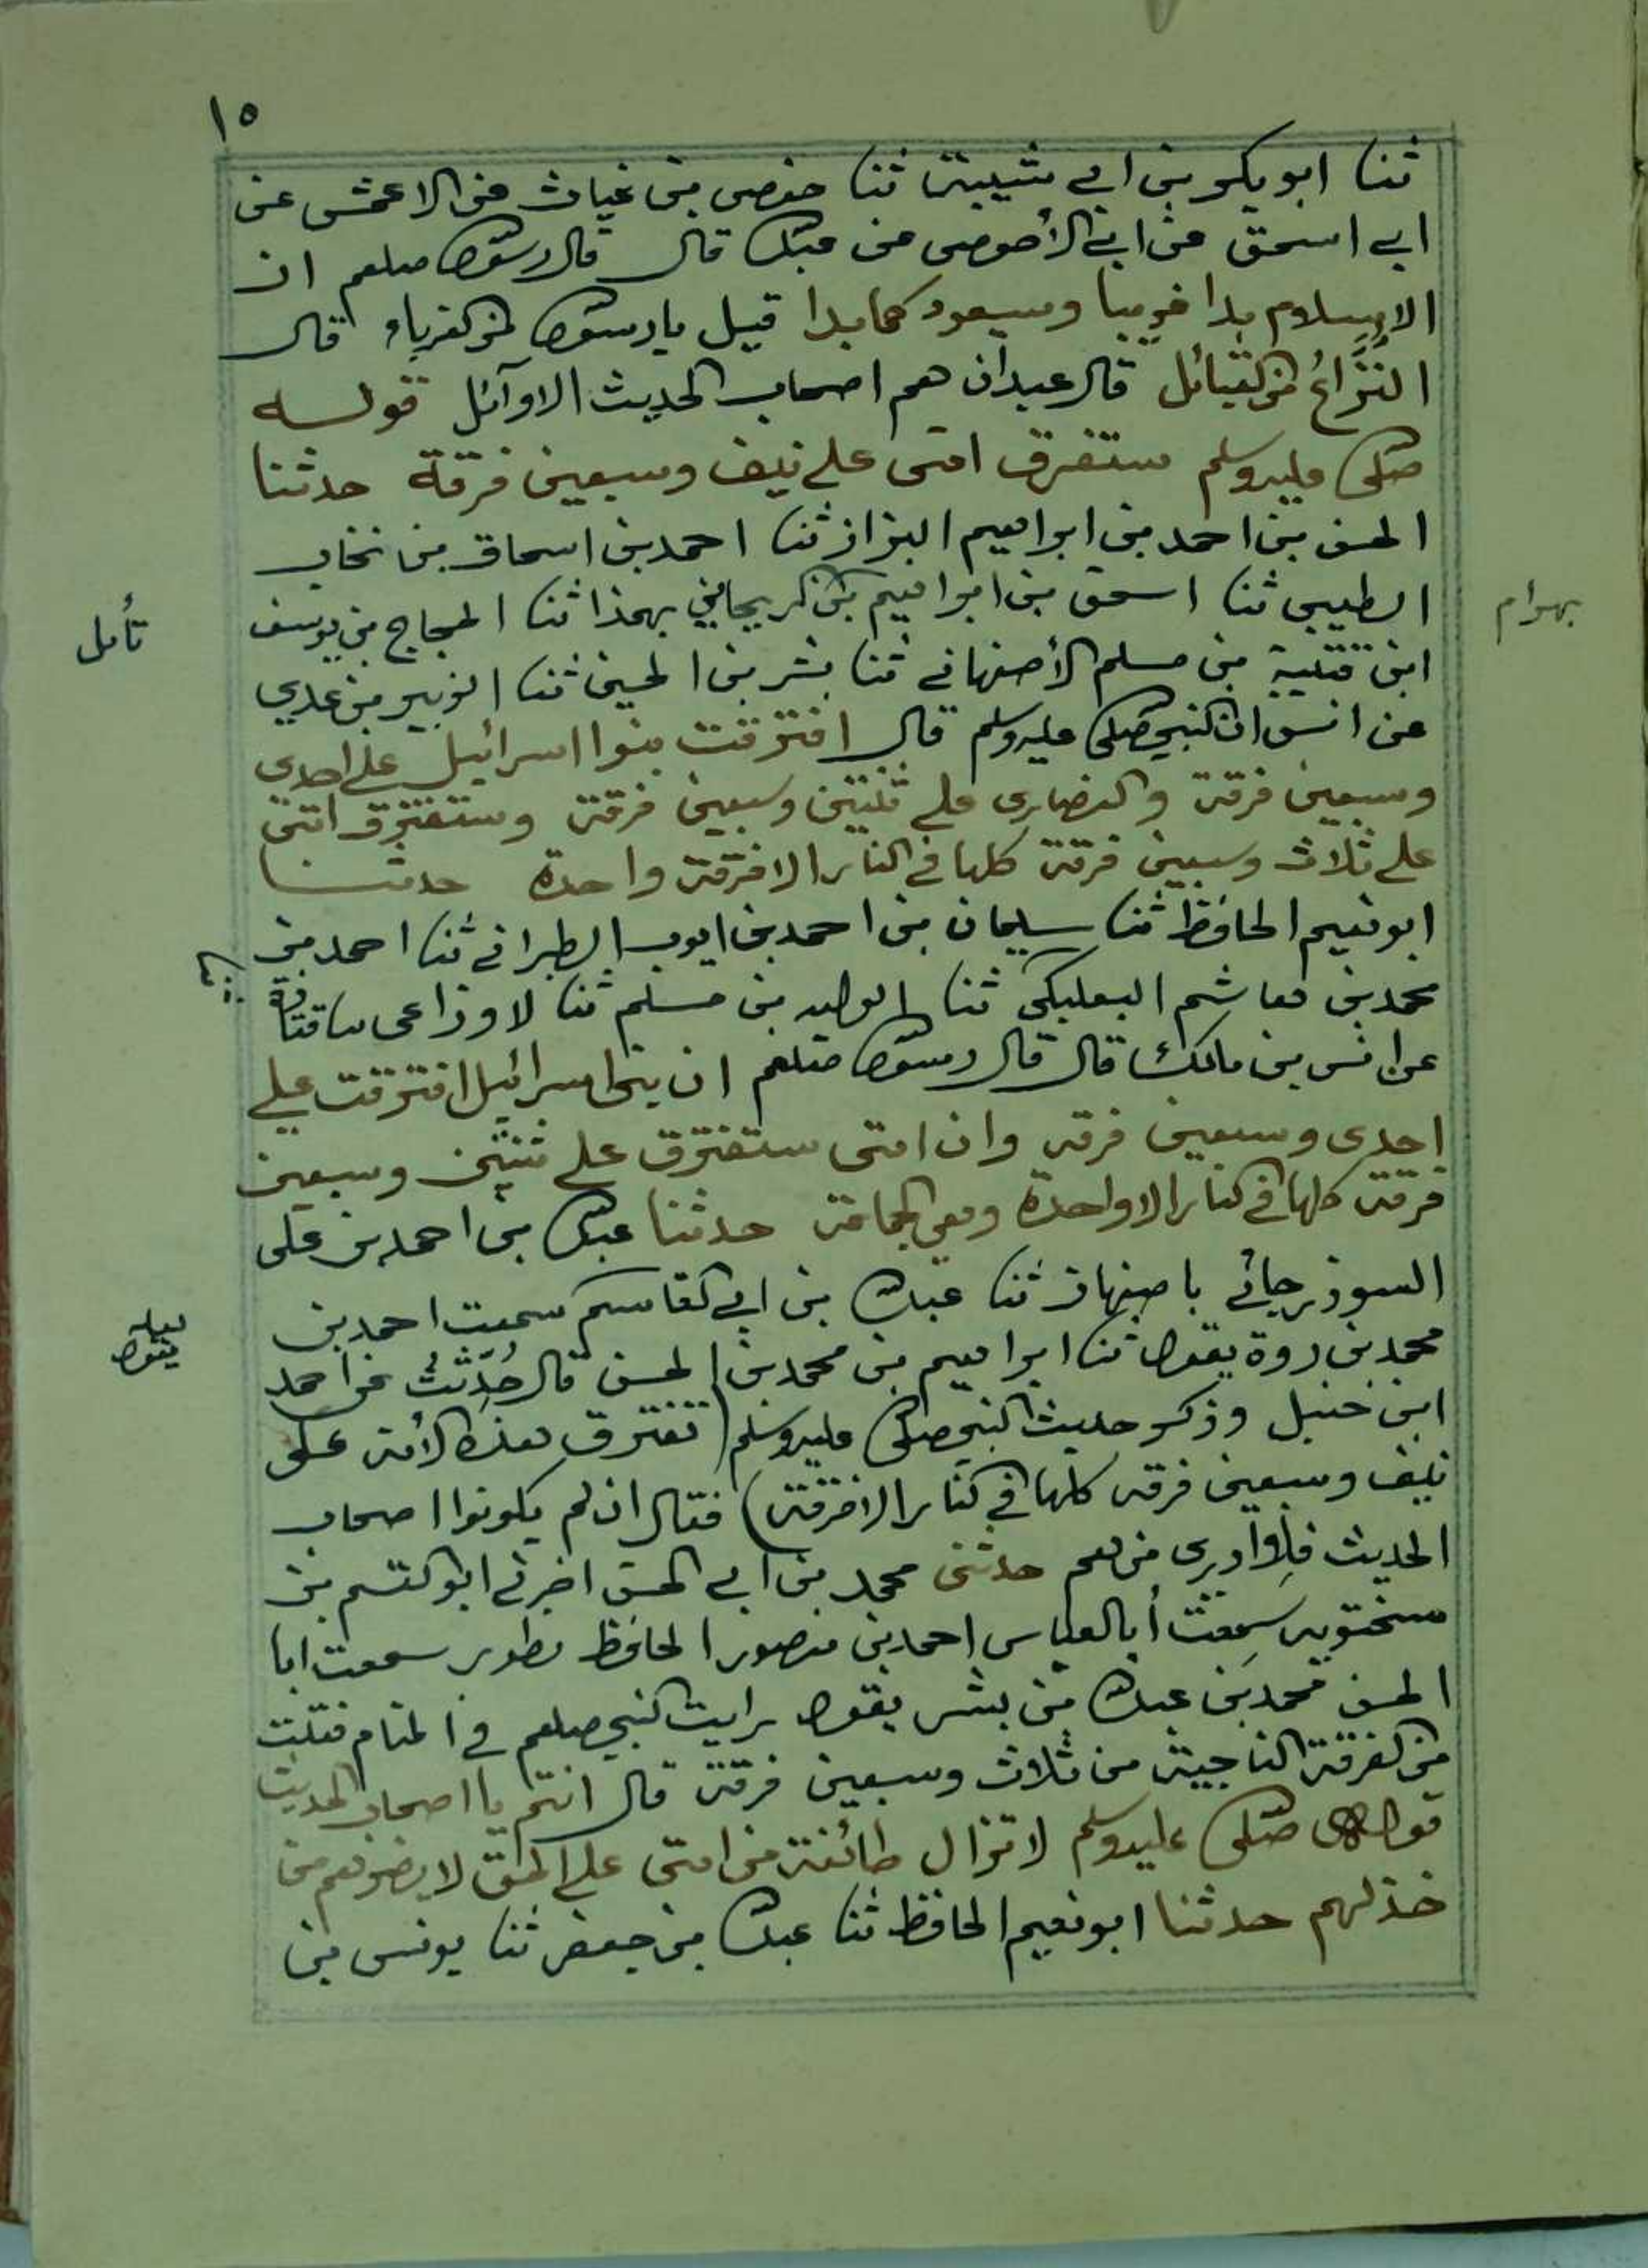 ١٥
ثنا ابو بكر بن ابي شيبة ثنا حفص بن غياث عن الاعمش عن
ابي اسحق عن ابي الأحوص عن عبدالله قال قال رسول الله صلعم ان
الاسلام بدا غريبا وسيعود كما بدا قيل يا رسول الله من الغرباء قال
النُّزَّاعُ من القبائل قال عبدان هم اصحاب الحديث الاوآئل قوله
صلى الله عليه وسلم ستفرق امتى على نيف وسبعين فرقة حدثنا
الحسن بن احمد بن ابراهيم البزاز ثنا احمد بن اسحاق بن نخاب
الطيبى ثنا اسحق بن ابراهيم بهمذا ثنا الحجاج بن يوسف
بهرام
تأمل
ابن قتيبة بن مسلم الأصفهانى ثنا بشر بن الحسين ثنا الزبير بن عدي
عن انس ان النبي صلى الله عليه وسلم قال افترقت بنوا اسرائيل على احدى
وسبعين فرقة والنصارى على ثنتين وسبعين فرقة وستفترق امتى
على ثلاث وسبعين فرقة كلها في النار الا فرقة واحدة حدثنا
ابو نعيم الحافظ ثنا سليمان بن احمد بن ايوب الطبرانى ثنا احمد بن
محمد بن هاشم البعلبكى ثنا الوليد بن مسلم ثنا لاوزاعى ثنا قتادة
عن انس بن مالك قال قال رسول الله صلعم ان بنى اسرائيل افترقت على
احدى وسبعين فرقه وان امتى ستفترق على ثنتين وسبعين
فرقة كلها في النار الا واحدة وهي الجماعة حدثنا عبدالله بن احمد بن على
السوذرجانى باصبهان ثنا عبدالله بن ابى القاسم سمعت احمد بن
محمد بن روة يقول ثنا ابراهيم بن محمد بن الحسن قال حُدِّثْتُ عن احمد
لعله
يقول
ابن حنبل وذكر حديث النبي صلى الله عليه وسلم (تفترق هذه الأمة على
نيف وسبعين فرقه كلها في النار الا فرقة) فقال ان لم يكونوا اصحاب
الحديث فلا ادرى من هم حدثنى محمد بن ابى الحسن اخبرنى ابو القسم بن
سختويه سَمِعْتُ أبا العباس احمد بن منصور الحافظ بصور سمعت ابا
الحسن محمد بن عبدالله بن بشر يقول رايت النبي صلعم في المنام فقلت
من الفرقة الناجية من ثلاث وسبعين فرقة قال انتم يا اصحاب الحديث
قوله صلى الله عليه وسلم لا تزال طائفة من امتى على الحق لا يضرهم من
خذلهم حدثنا ابو نعيم الحافظ ثنا عبدالله بن جعفر ثنا يونس بن